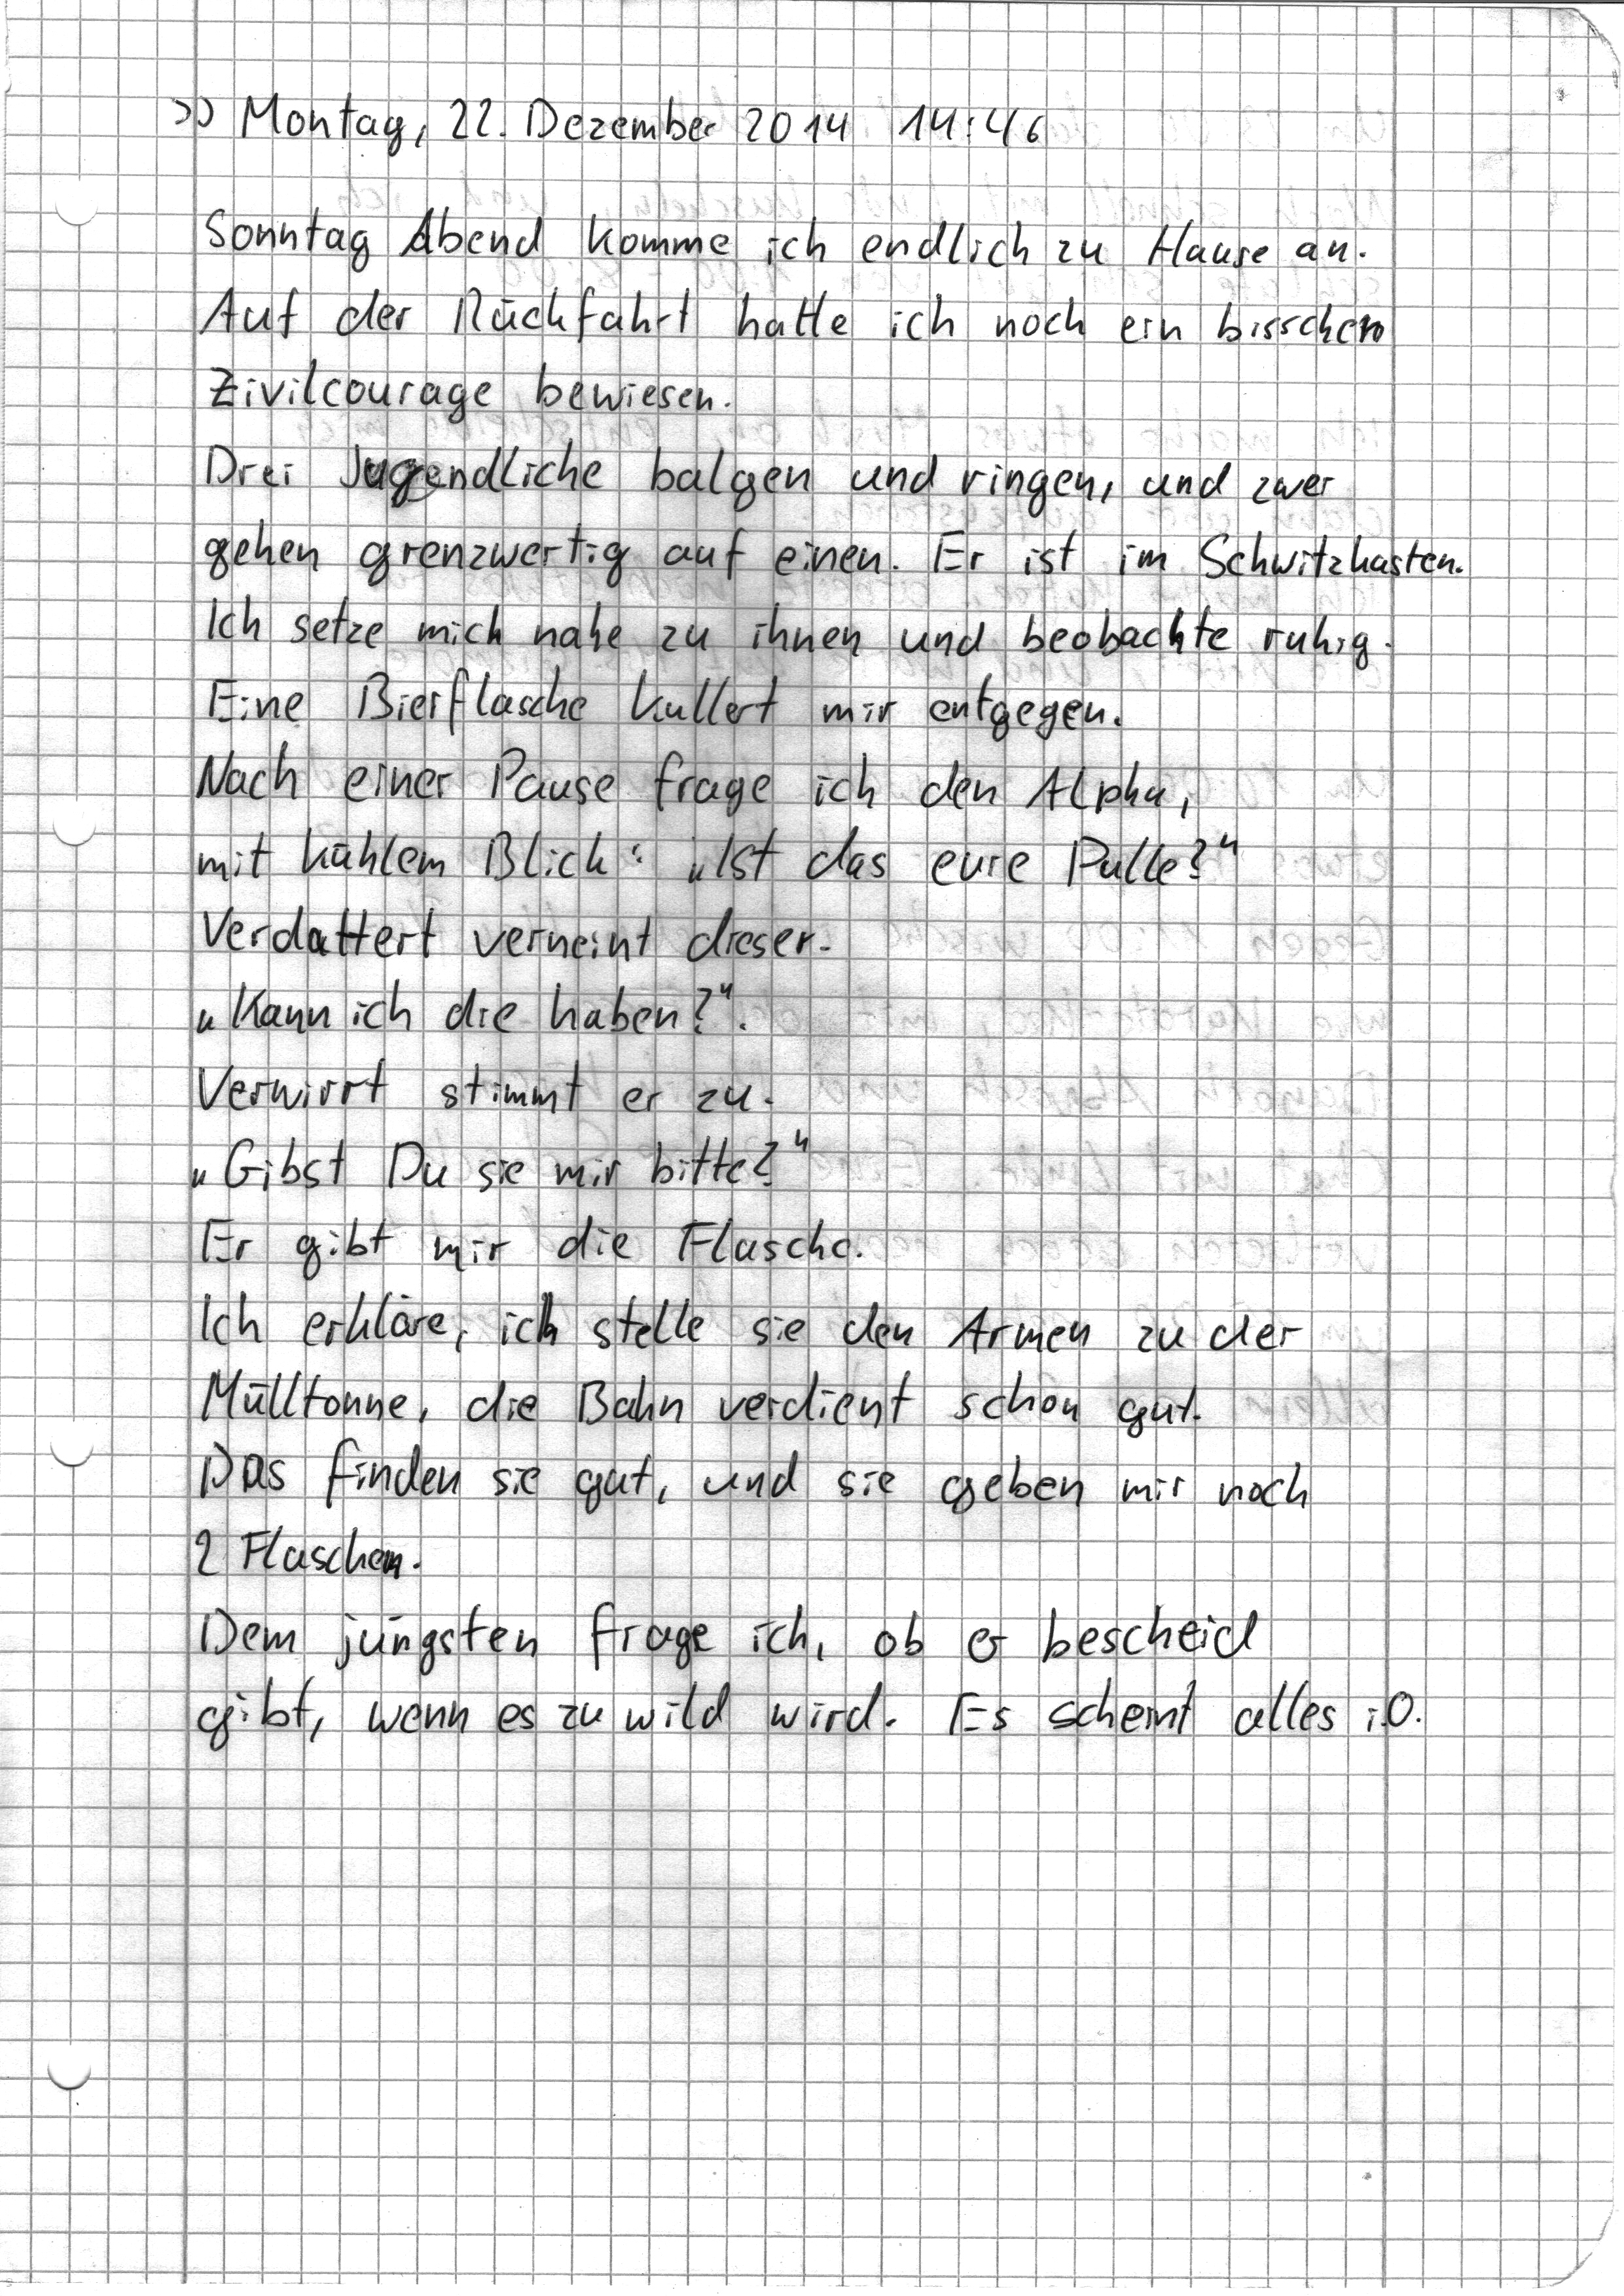 >> Montag, 22. Dezember 2014 14:46
Sonntag Abend komme ich endlich zu Hause an.
Auf der Rückfahrt hatte ich noch ein bisschen
Zivilcourage bewiesen.
Drei Jugendliche balgen und ringen, und zwei
gehen grenzwertig auf einen. Er ist im Schwitzkasten.
Ich setze mich nahe zu ihnen und beobachte ruhig.
Eine Bierflasche kullert mir entgegen.
Nach einer Pause frage ich den Alpha,
mit kühlem Blick: „Ist das eure Pulle?"
Verdattert verneint dieser.
„Kann ich die haben?".
Verwirrt stimmt er zu.
„Gibst Du sie mir bitte?"
Er gibt mir die Flasche.
Ich erkläre, ich stelle sie den Armen zu der
Mülltonne, die Bahn verdient schon gut.
Das finden sie gut, und sie geben mir noch
2 Flaschen.
Dem jüngsten frage ich, ob er bescheid
gibt, wenn es zu wild wird. Es scheint alles i.O.